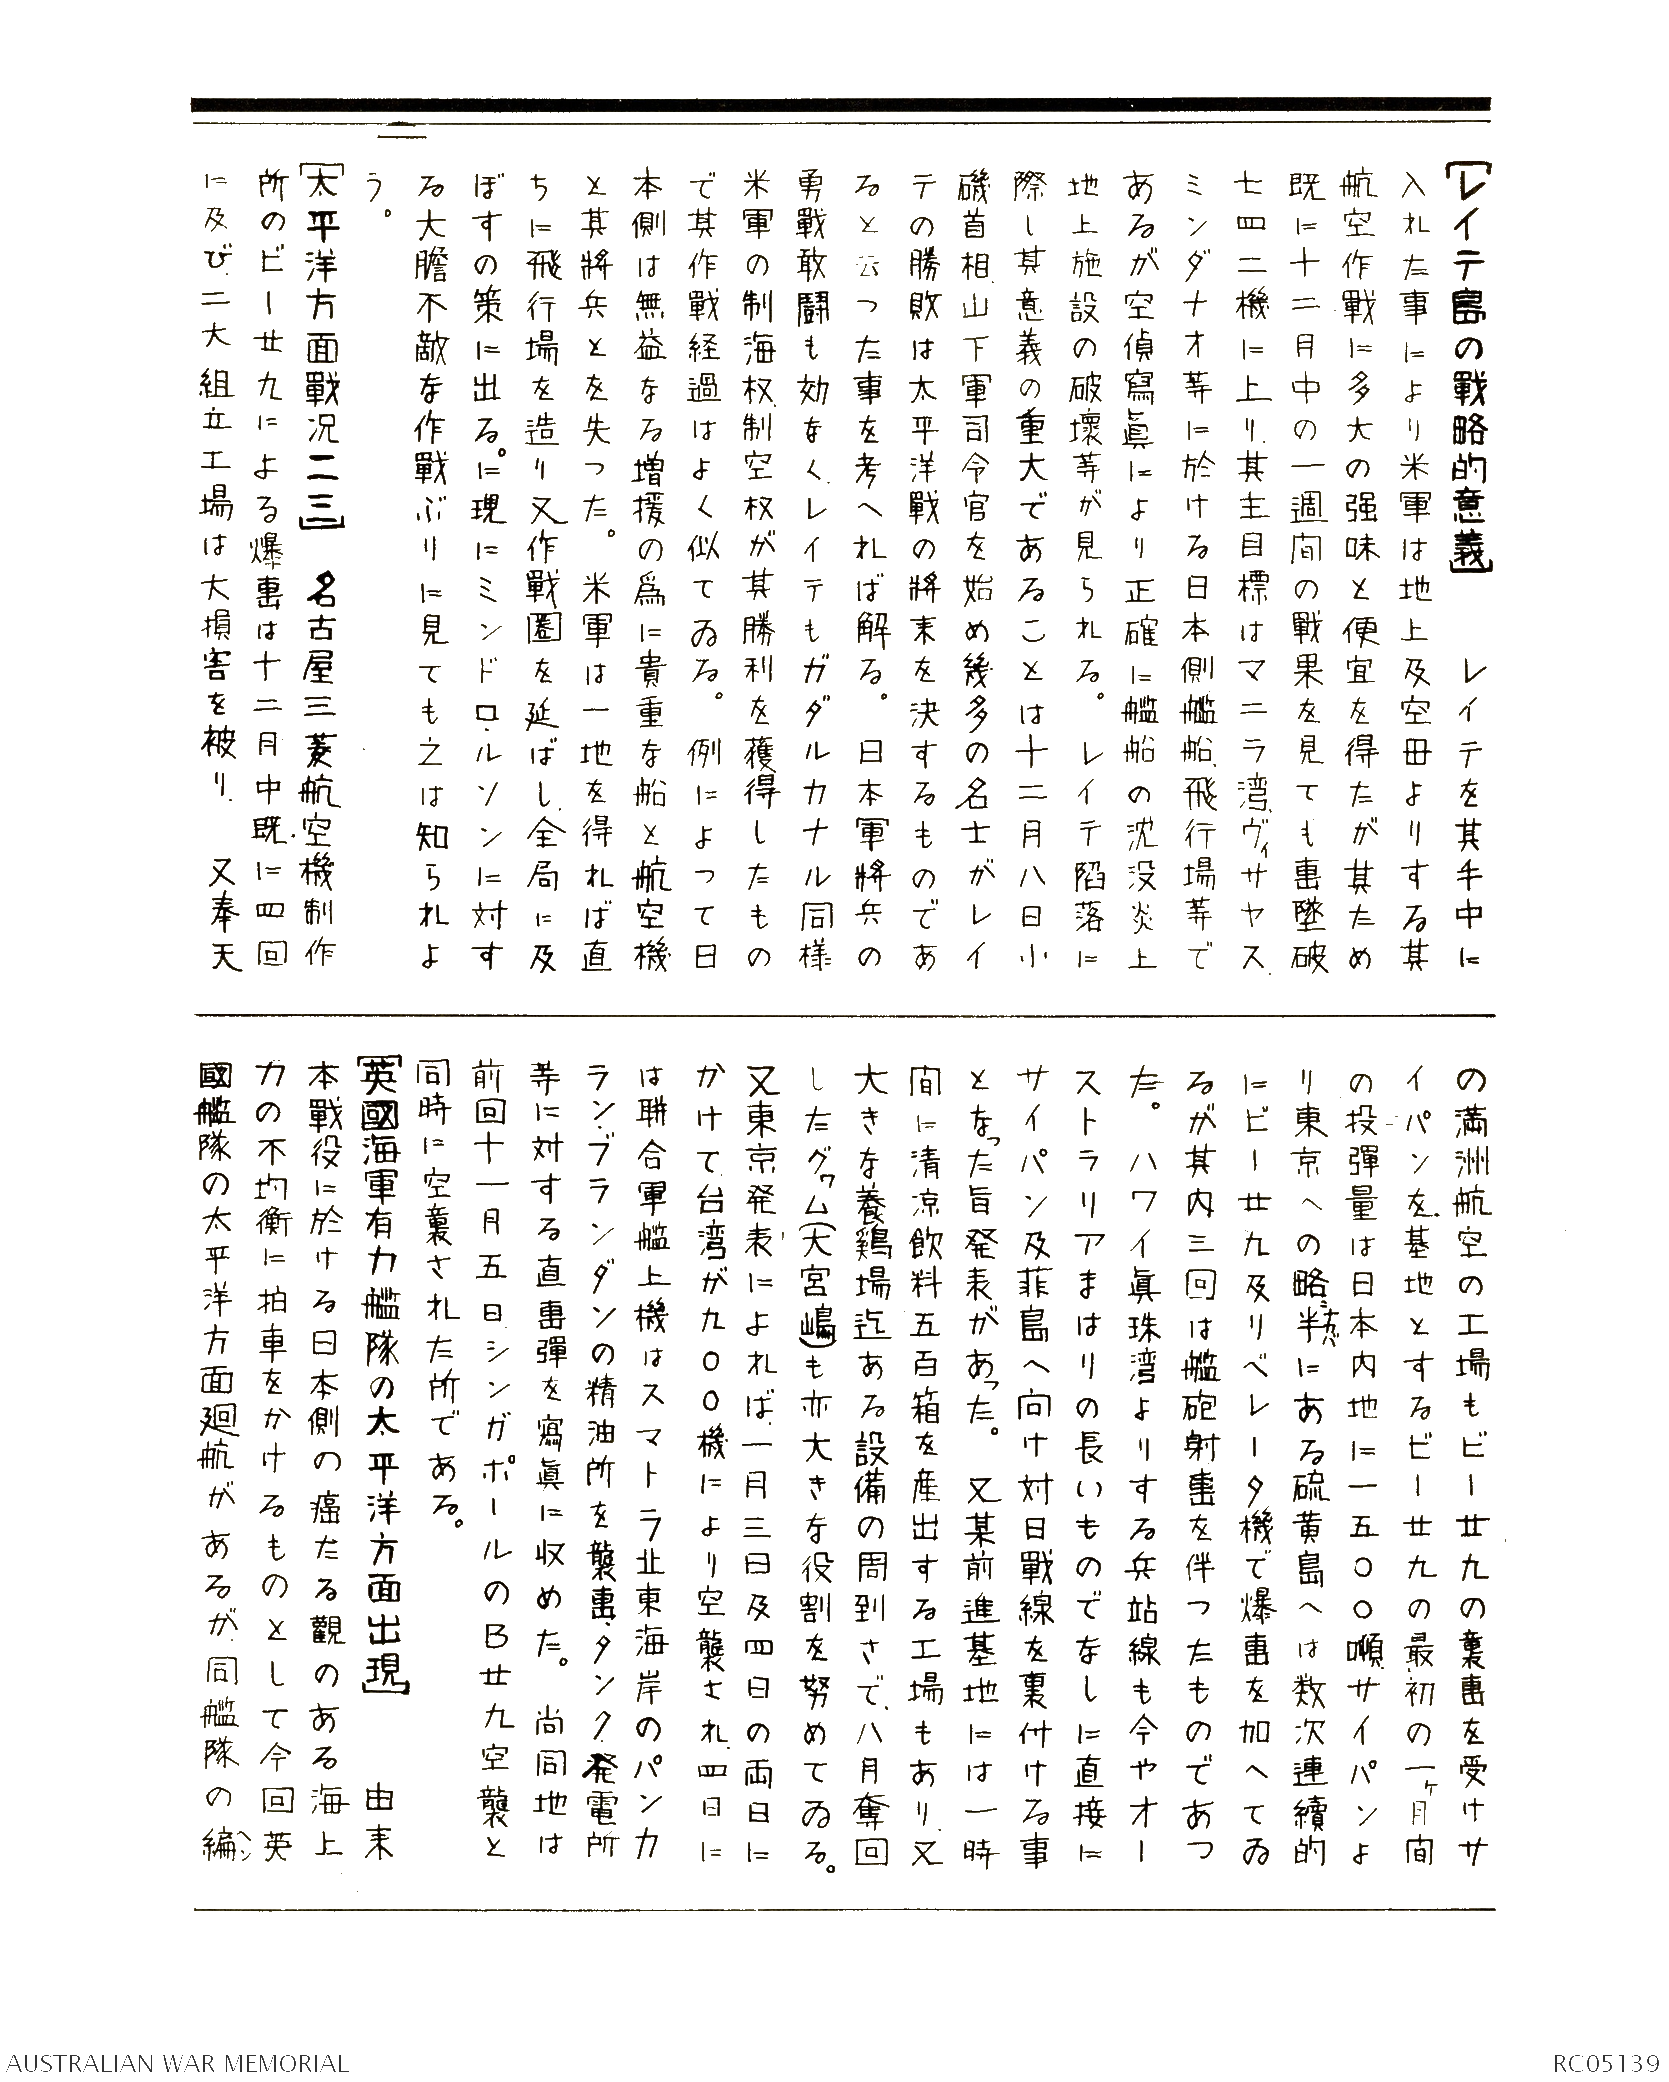 二
[レイテ島の戰略的意義]　レイテを其手中に
入れた事により米軍は地上及空母よりする其
航空作戰に多大の强味と便宜を得たが其ため
既に十二月中の一週间の戰果を見ても擊墜破
七四二機に上り、其主目標はマニラ湾、ヴィサヤス、
ミンダナオ等に於ける日本側艦船、飛行場等で
あるが空偵寫眞により正確に艦船の沈没炎上
地上施設の破壞等が見られる。　レイテ陷落に
際し其意義の重大であることは十二月八日小
磯首相、山下軍司令官を始め幾多の名士がレイ
テの勝敗は太平洋戰の將来を決するものであ
ると云つた事を考へれば解る。　日本軍將兵の
勇戰敢闘も効なく、レイテもガダルカナル同様
米軍の制海权、制空权が其勝利を獲得したもの
で其作戰経過はよく似てゐる。　例によつて日
本側は無益なる増援の爲に貴重な船と航空機
と其將兵とを失つた。　米軍は一地を得れば直
ちに飛行場を造り又作戰圏を延ばし、全局に及
ぼすの策に出る。に現にミンドロ、ルソンに対す
る大膽不敵な作戰ぶりに見ても之は知られよ
う。
[太平洋方面戰况二三]　名古屋三菱航空機制作
所のビー廿九による爆擊は十二月中、既に四回
に及び、二大組立工場は大損害を被り、　又奉天
の満洲航空の工場もビー廿九の襲擊を受けサ
イパンを基地とするビー廿九の最初の一ヶ月间
の投彈量は日本内地に一五〇〇噸、サイパンよ
り東京への略半ナカバにある硫黄島へは数次連續的
にビー廿九及リベレータ機で爆擊を加へてゐ
るが其内三回は艦砲射擊を伴つたものであつ
た。　ハワイ眞珠湾よりする兵站線も今やオー
ストラリアまはりの長いものでなしに直接に
サイパン及菲島へ向け対日戰線を裏付ける事
となった旨発表があった。　又某前進基地には一時
间に清凉飲料五百箱を産出する工場もあり、又
大きな養鶏場迄ある設備の周到さで、八月奪回
したグヮム(大宮嶋)も亦大きな役割を努めてゐる。
又東京発表によれば、一月三日及四日の両日に
かけて台湾が九〇〇機により空襲され、四日に
は聨合軍艦上機はスマトラ北東海岸のパンカ
ラン、ブランダンの精油所を襲擊、タンク、発電所
等に対する直擊彈を寫眞に収めた。　尚同地は
前回十一月五日、シンガポールのB廿九空襲と
同時に空襲された所である。
[英國海軍有力艦隊の太平洋方面出現]　由来
本戰役に於ける日本側の癌たる觀のある海上
力の不均衡に拍車をかけるものとして今回英
國艦隊の太平洋方面廻航があるが、同艦隊の編ヘン
AUSTRALIAN WAR MEMORIAL
RC05139